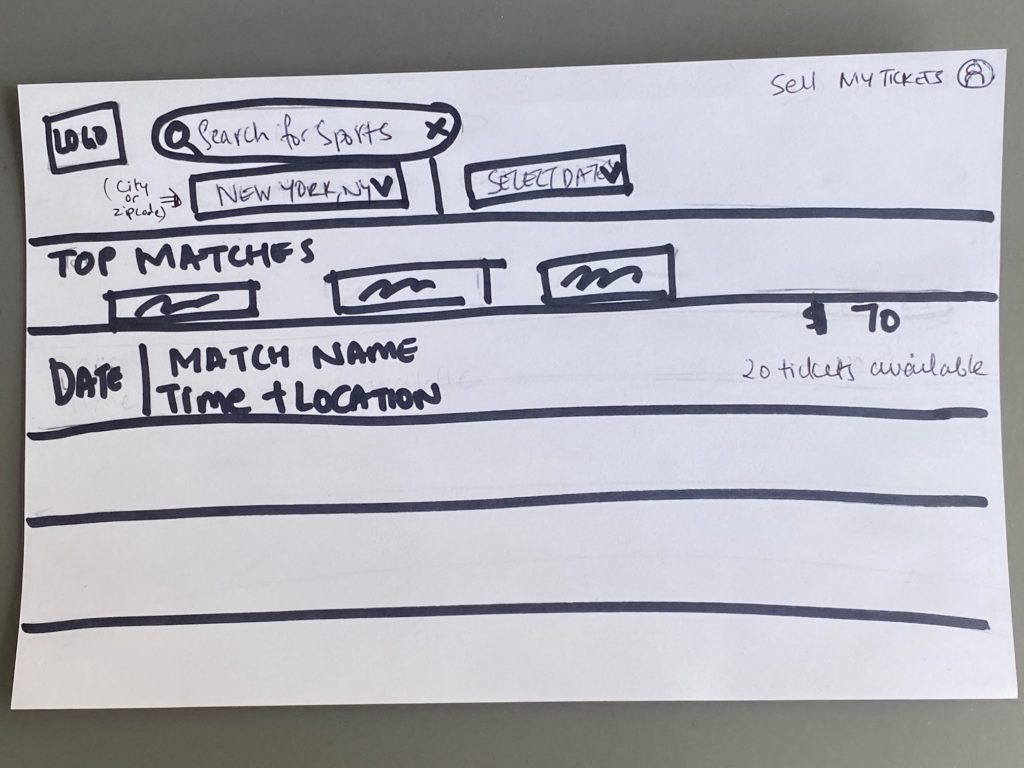 Sell MY TICKETS
LOGO
Search for Sports X
(City or zipcode)
NEW YORK, NY
SELECT DATE
TOP MATCHES
$ 70
DATE
MATCH NAME
20 tickets available
TIME + LOCATION